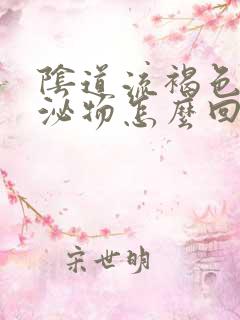 陰道流褐色
泌物怎麼回
宋世明